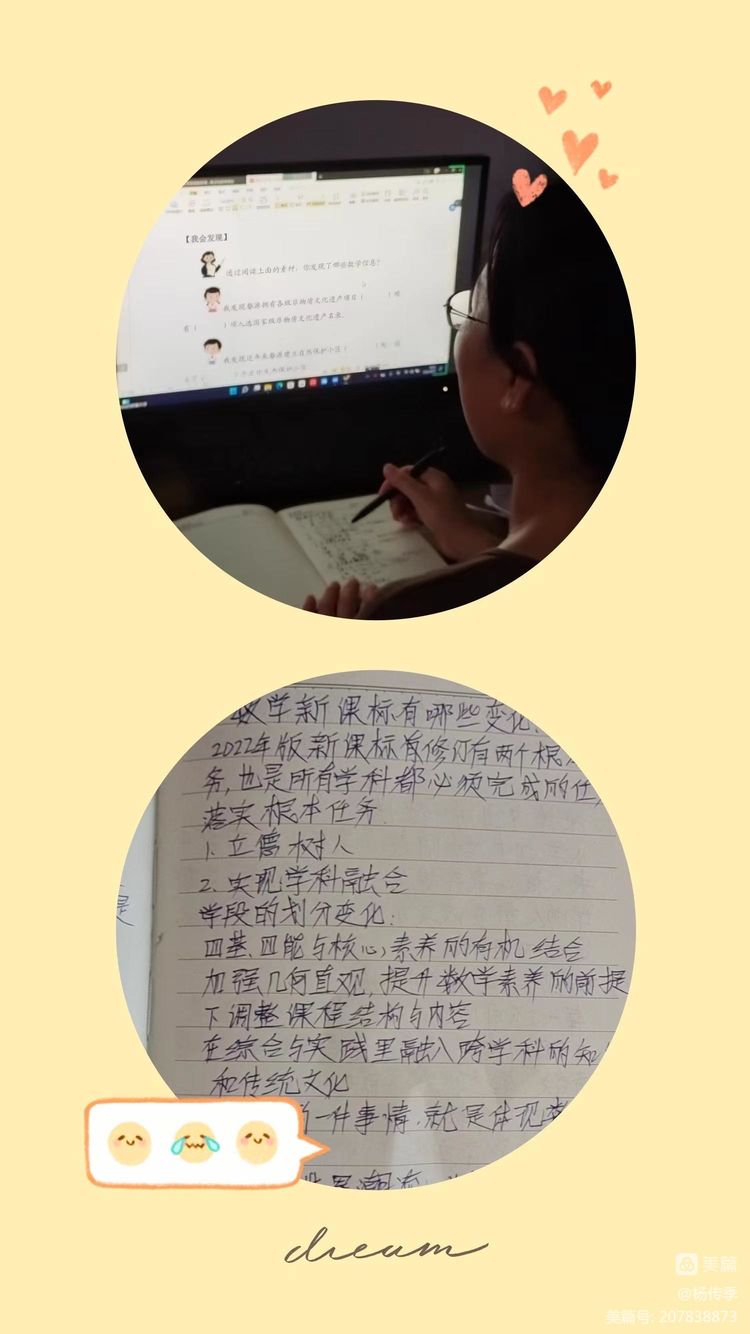 【我会发现】
通过阅读上面的素材，你发现了哪些数学信息？
我发现婺源拥有各级非物质文化遗产项目（ ）项
有（ ）项入选国家级非物质文化遗产名录。
我发现近年来婺源建立自然保护小区（
数学新课标有哪些变化
2022年版新课标准修订有两个根
务,也是所有学科都必须完成的任
落实根本任务
1. 立德树人
2. 实现学科融合
学段的划分变化:
四基、四能与核心素养的有机结合
加强几何直观,提升数学素养的前提
下调整课程结构与内容
在综合与实践里融入跨学科的知
和传统文化
一件事情,就是体现数
dream
美篇
@杨传季
美篇号: 207838873